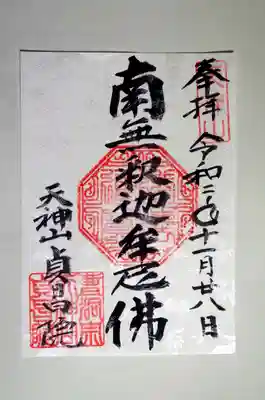 奉拝 令和二年十一月廿八日
南無釈迦牟尼佛
天神山 貞昌院